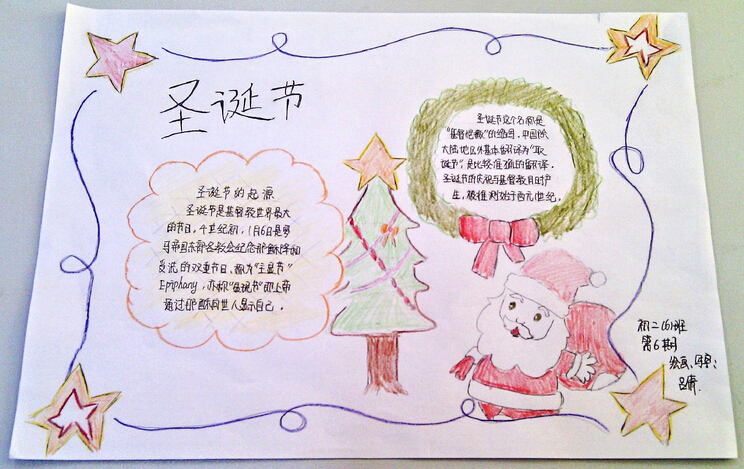 圣诞节
圣诞节的起源
圣诞节是基督教世界最大
的节日。4世纪初,1月6日是罗
马帝国东部各教会纪念耶稣降生和
受洗的双重节日、称为"主显节"
Epiphany,亦称"显现节"即上帝
通过耶稣向世人显示自己。
圣诞节这个名称是
"基督弥撒"的缩写。中国的
大陆地区外基本翻译为"耶
诞节",是比较准确的翻译。
圣诞节的庆祝与基督教同时产
生,被推测始于西元1世纪。
初二(6)班
第6期
绘画、